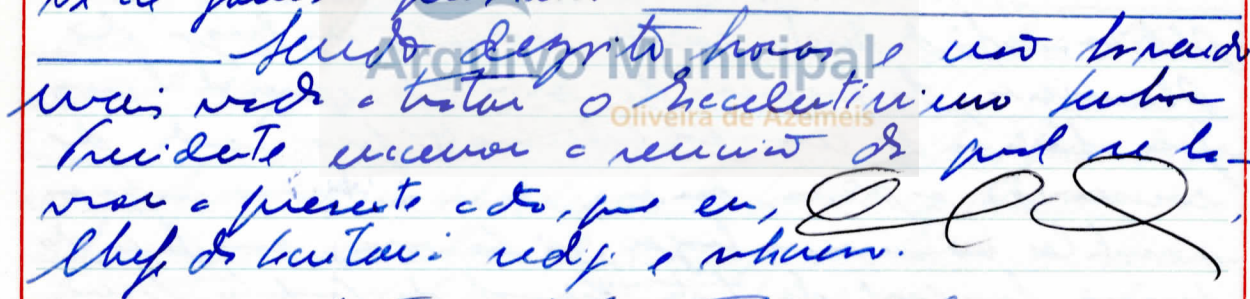 Sendo dezoito horas e não havendo
mais nada a tratar o Excelentissimo Senhor
Presidente encerrou a reunião da qual se la-
vrou a presente acta, que eu,
Chefe da Secretaria redigi e subscrevo.
Arquivo Municipal
Oliveira de Azeméis